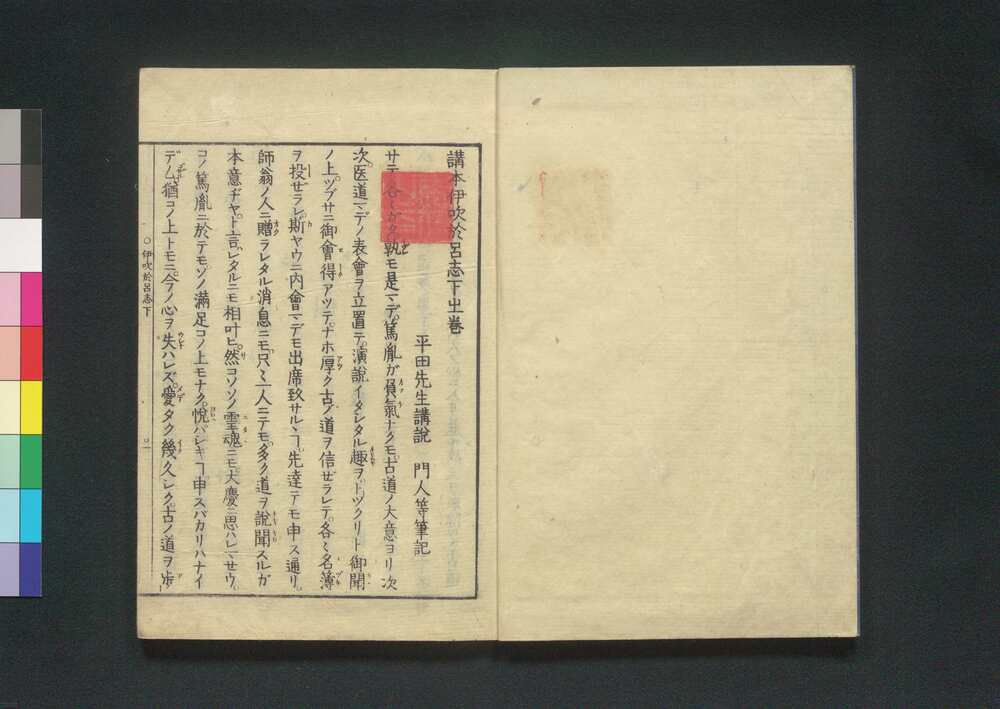 講本伊吹於呂志下之巻
平田先生講説　門人等筆記
サテ各〻ガタ孰モ是マデ篤胤ガ負氣ナクモ古道ノ大意ヨリ次
次医道マデノ表會ヲ立置テ演説イタシタル趣ヲトツクリト御聞
ノ上ツブサニ御會得アツテナホ厚ク古ノ道ヲ信ゼラレテ各〻名簿
ヲ投ゼラレ斯ヤウニ内會マデモ出席致サルヽヿ先達テモ申ス通リ
師翁ノ人ニ贈ラレタル消息ニモ只〻一人ニテモ多ク道ヲ説聞スルガ
本意ヂヤト言レタルニモ相叶ヒ然コソソノ霊魂ニモ大慶ニ思ハレマセウ
コノ篤胤ニ於テモソノ満足コノ上モナク悦バシキヿ申スバカリハナイ
デム猶コノ上トモニ今ノ心ヲ失ハレズ愛タク幾久シク古ノ道ヲ歩
○伊吹於呂志下
○一